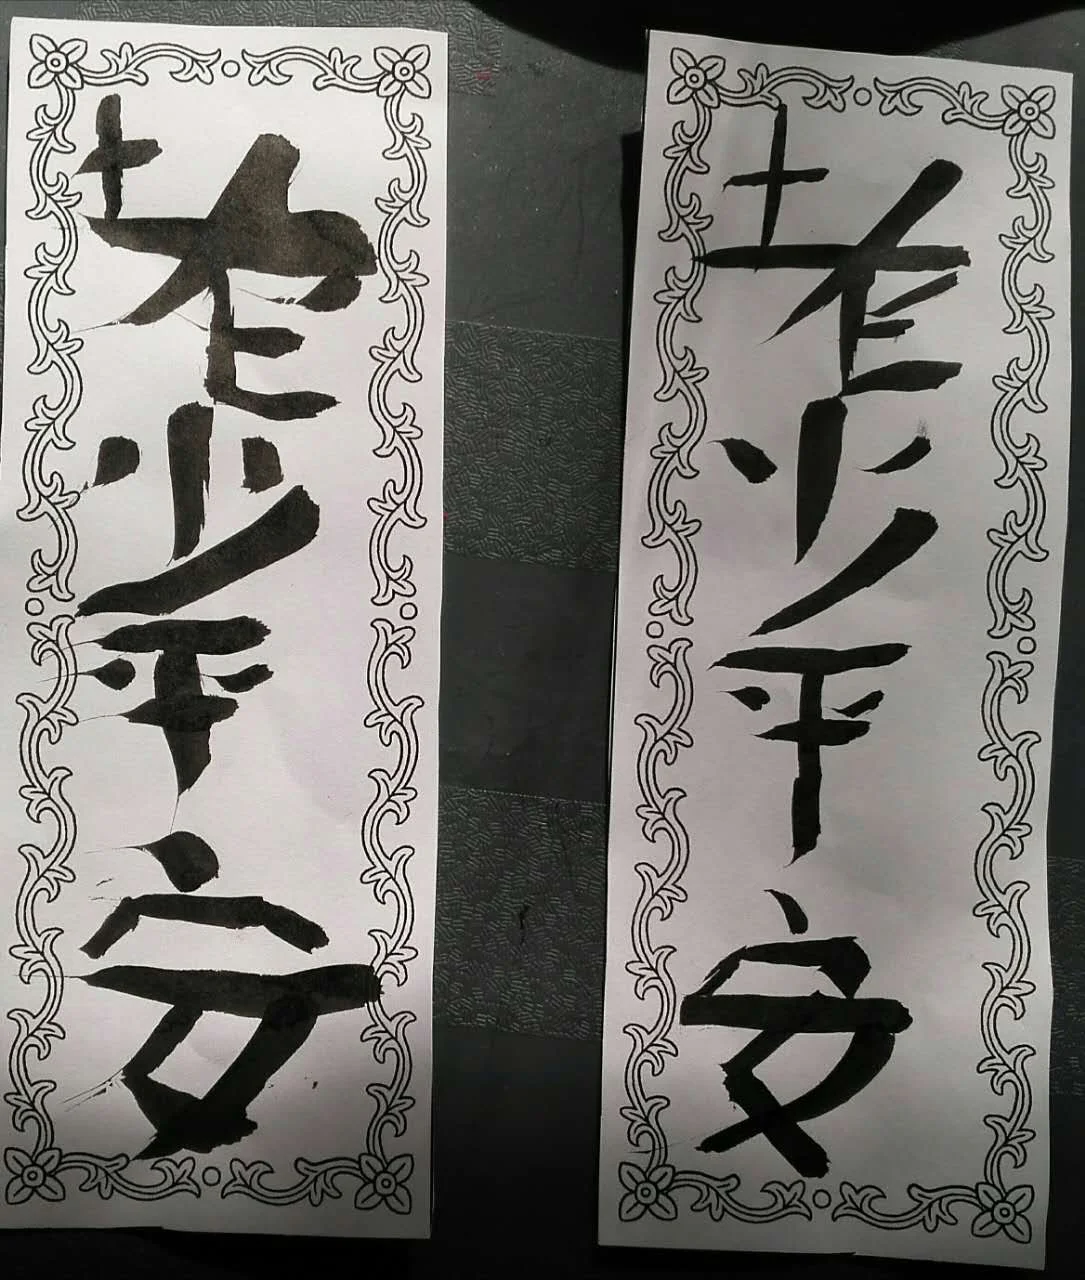 老少平安
老少平安